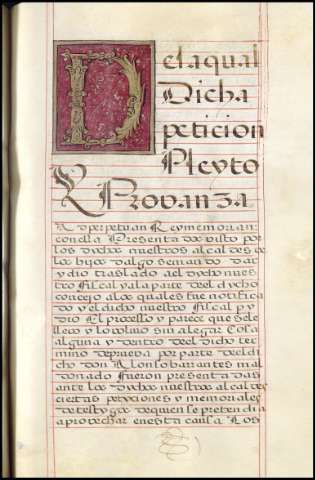 De la qual
Dicha
peticion
Pleyto
Y Provanza
Ad perpetuan Rey memorian
con ella Presentado visto por
los dychos nuestros alcaldes de
los hijos dalgo se mando dar
y dio traslado a el dycho nues
tro fiscal y a la parte del dycho
concejo a los quales fue notifica
do y el dicho nuestro fiscal py
dio El processo y parece que se le
lleco y lo volvio sin alegar Cosa
alguna y dentro del dicho ter
mino de prueva por parte del di
cho don Alonso barrantes mal
donado fueron presentadas
ante los dychos nuestros alcaldes
ciertas petyciones y memoriales
de testygos de quien se pretendia
aprobechar en esta causa Los